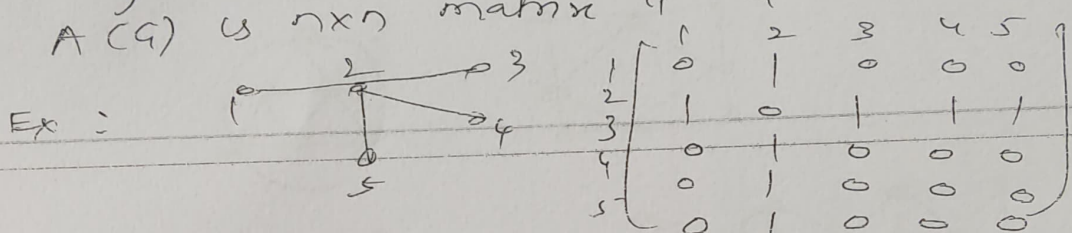 A(G) is n×n matrix
Ex :
1 2 3 4 5
1 2 3 4 5
1 0 1 0 0 0
2 1 0 1 1 1
3 0 1 0 0 0
4 0 1 0 0 0
5 0 1 0 0 0